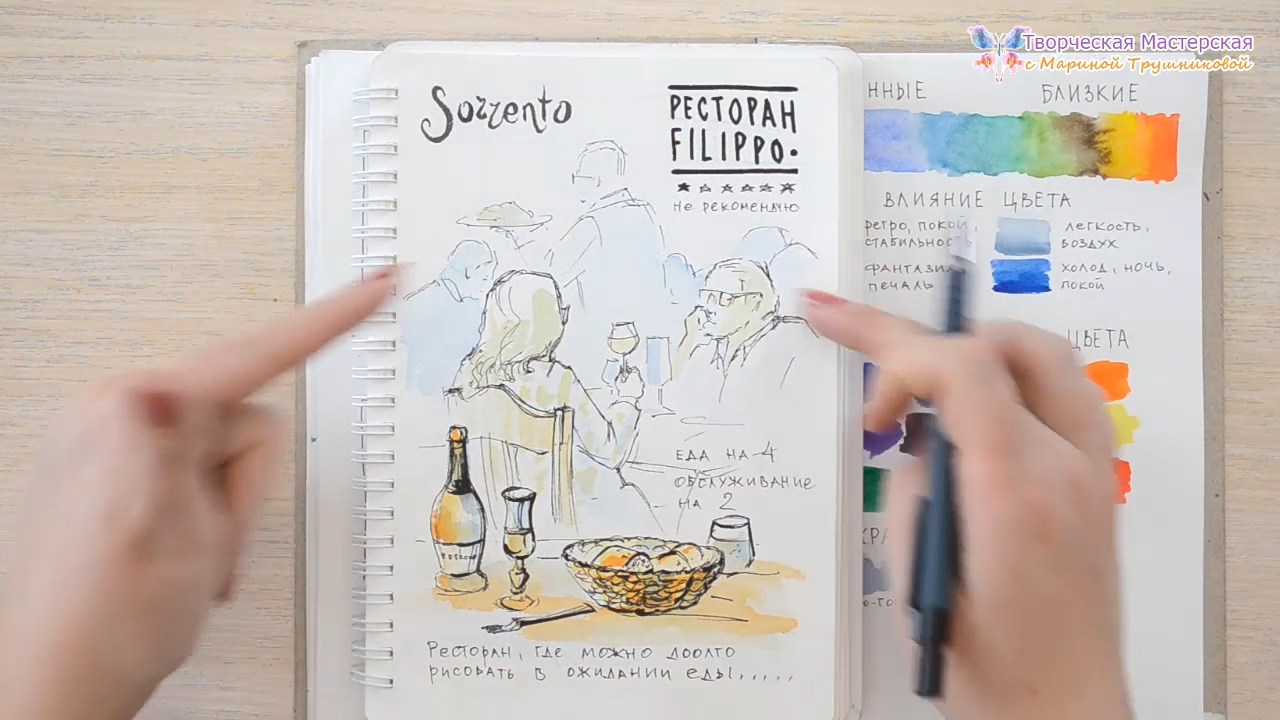 Творческая Мастерская
с Мариной Трушниковой
Sorrento
РЕСТОРАН
FILIPPO.
НЕ РЕКОМЕНДУЮ
ЕДА НА 4
ОБСЛУЖИВАНИЕ
НА 2
РЕСТОРАН, ГДЕ МОЖНО ДООЛГО
РИСОВАТЬ В ОЖИДАНИИ ЕДЫ.....
ННЫЕ
БЛИЗКИЕ
ВЛИЯНИЕ ЦВЕТА
РЕТРО, ПОКОЙ,
СТАБИЛЬНОСТЬ
ЛЕГКОСТЬ,
ВОЗДУХ
ПЕЧАЛЬ
ХОЛОД, НОЧЬ,
ПОКОЙ
ЦВЕТА